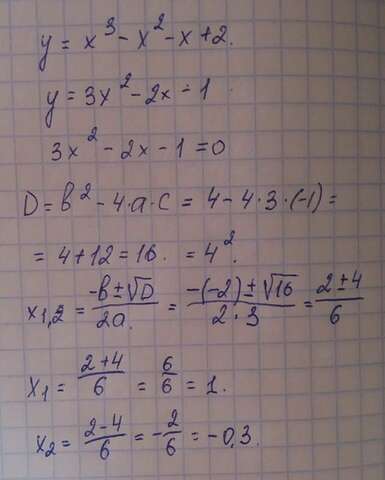 y = x³ - x² - x + 2.
y = 3x² - 2x - 1
3x² - 2x - 1 = 0
D = b² - 4·a·c = 4 - 4·3·(-1) =
= 4 + 12 = 16. = 4².
x₁,₂ = (-b ± √D)/(2a.) = (-(-2) ± √16)/(2·3) = (2 ± 4)/6
x₁ = (2+4)/6 = 6/6 = 1.
x₂ = (2-4)/6 = -2/6 = -0,3.